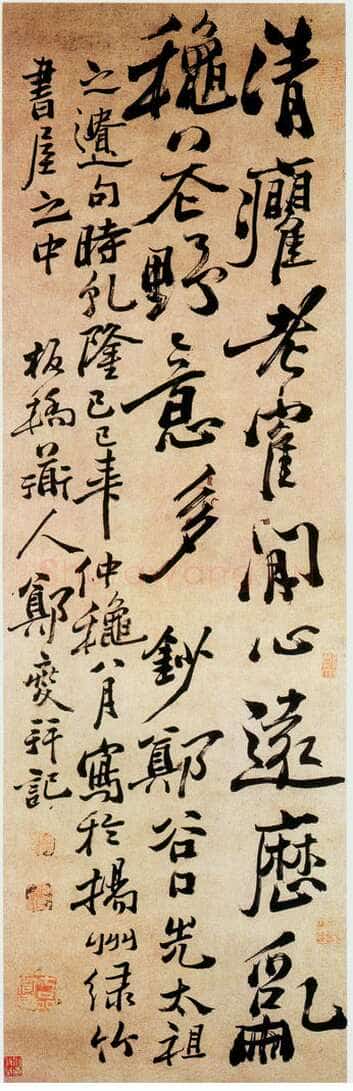 清癯老隺閒心遠歷亂
穐花野意多 鈔鄭谷口先太祖
之遺句時乾隆己巳年仲穐八月寫於揚州緑竹
書屋之中 板橋衜人鄭燮記